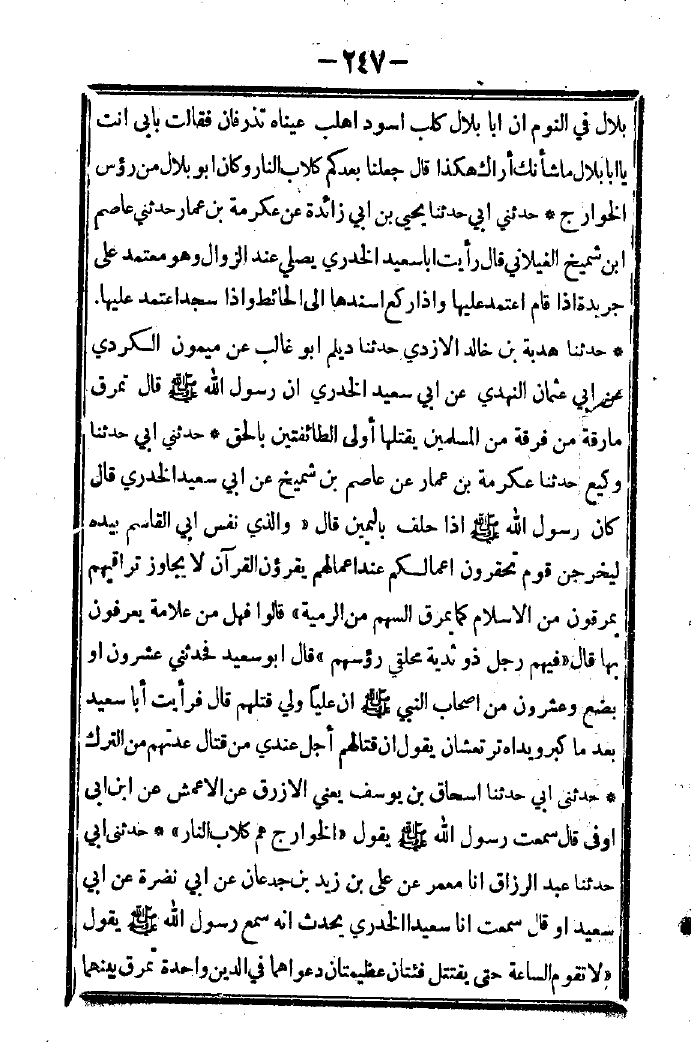 — ٢٤٧ —
بلال في النوم ان ابا بلال كلب اسود اهلب عيناه تذرفان فقالت بابى انت
يا ابا بلال ما شأنك أراك هكذا قال جعلنا بعدكم كلاب النار وكان ابو بلال من رؤس
الخوارج * حدثني ابي حدثنا يحيى بن ابي زائدة عن عكرمة بن عمار حدثني عاصم
ابن شميخ الغيلاني قال رأيت ابا سعيد الخدري يصلي عند الزوال وهو معتمد على
جريدة اذا قام اعتمد عليها واذا ركع اسندها الى الحائط واذا سجد اعتمد عليها.
* حدثنا هدبة بن خالد الازدي حدثنا ديلم ابو غالب عن ميمون الكردي
عن ابي عثمان النهدي عن ابي سعيد الخدري ان رسول الله ﷺ قال تمرق
مارقة من فرقة من المسلمين يقتلها أولى الطائفتين بالحق * حدثني ابي حدثنا
وكيع حدثنا عكرمة بن عمار عن عاصم بن شميخ عن ابي سعيد الخدري قال
كان رسول الله ﷺ اذا حلف باليمين قال « والذي نفس ابي القاسم بيده
ليخرجن قوم تحقرون اعمالكم عند اعمالهم يقرؤن القرآن لا يجاوز تراقيهم
يمرقون من الاسلام كما يمرق السهم من الرمية» قالوا فهل من علامة يعرفون
بها قال «فيهم رجل ذو ثدية محلقي رؤسهم »قال ابو سعيد فحدثني عشرون او
بضع وعشرون من اصحاب النبي ﷺ ان علياً ولي قتلهم قال فرأيت أبا سعيد
بعد ما كبر ويداه ترتعشان يقول ان قتالهم أجل عندي من قتال عدتهم من الترك
* حدثنى ابي حدثنا اسحاق بن يوسف يعني الازرق عن الاعمش عن ابن ابى
اوفى قال سمعت رسول الله ﷺ يقول «الخوارج هم كلاب النار» * حدثنى ابي
حدثنا عبد الرزاق انا معمر عن على بن زيد بن جدعان عن ابي نضرة عن ابي
سعيد او قال سمعت انا سعيدا الخدري يحدث انه سمع رسول الله ﷺ يقول
«لا تقوم الساعة حتى يقتتل فئتان عظيمتان دعواهما في الدين واحدة تمرق بينهما